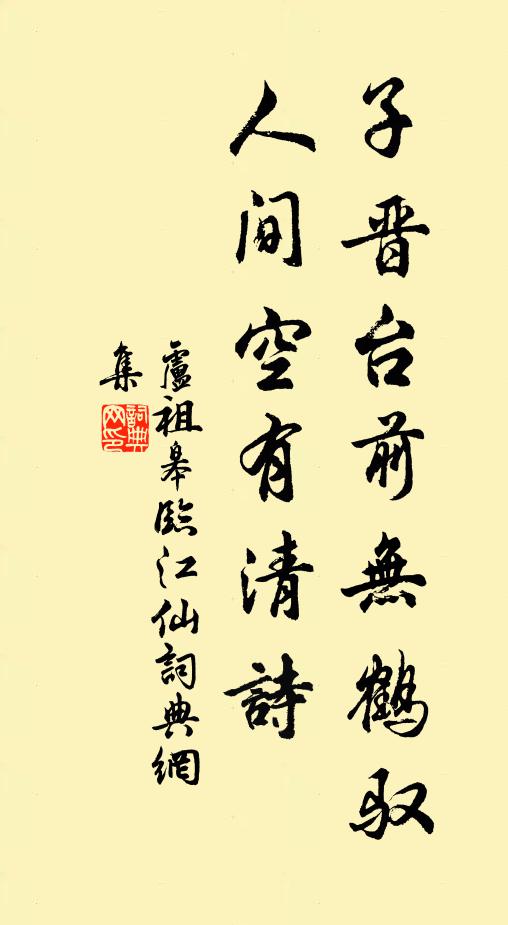 子晋台前無鹤驭
人间空有清詩
盧祖皋臨江仙詞典網
集
詞典网印